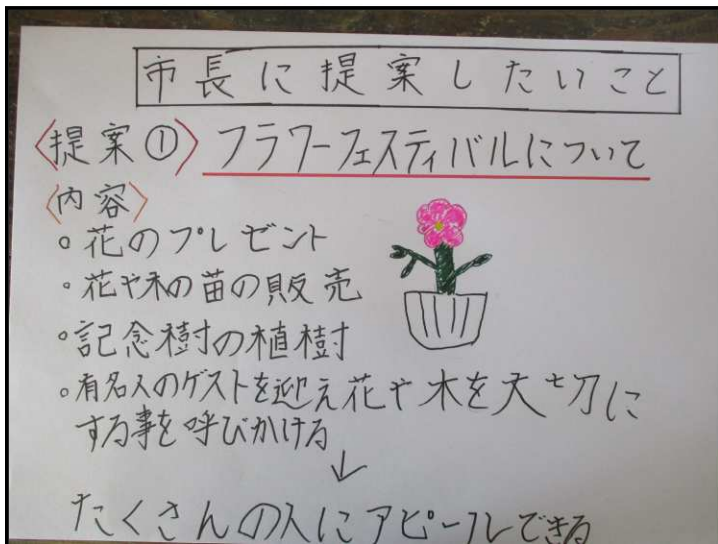 市長に提案したいこと
〈提案①〉フラワーフェスティバルについて
〈内容〉
。花のプレゼント
。花や木の苗の販売
。記念樹の植樹
。有名人のゲストを迎え花や木を大切に
する事を呼びかける
↓
たくさんの人にアピールできる